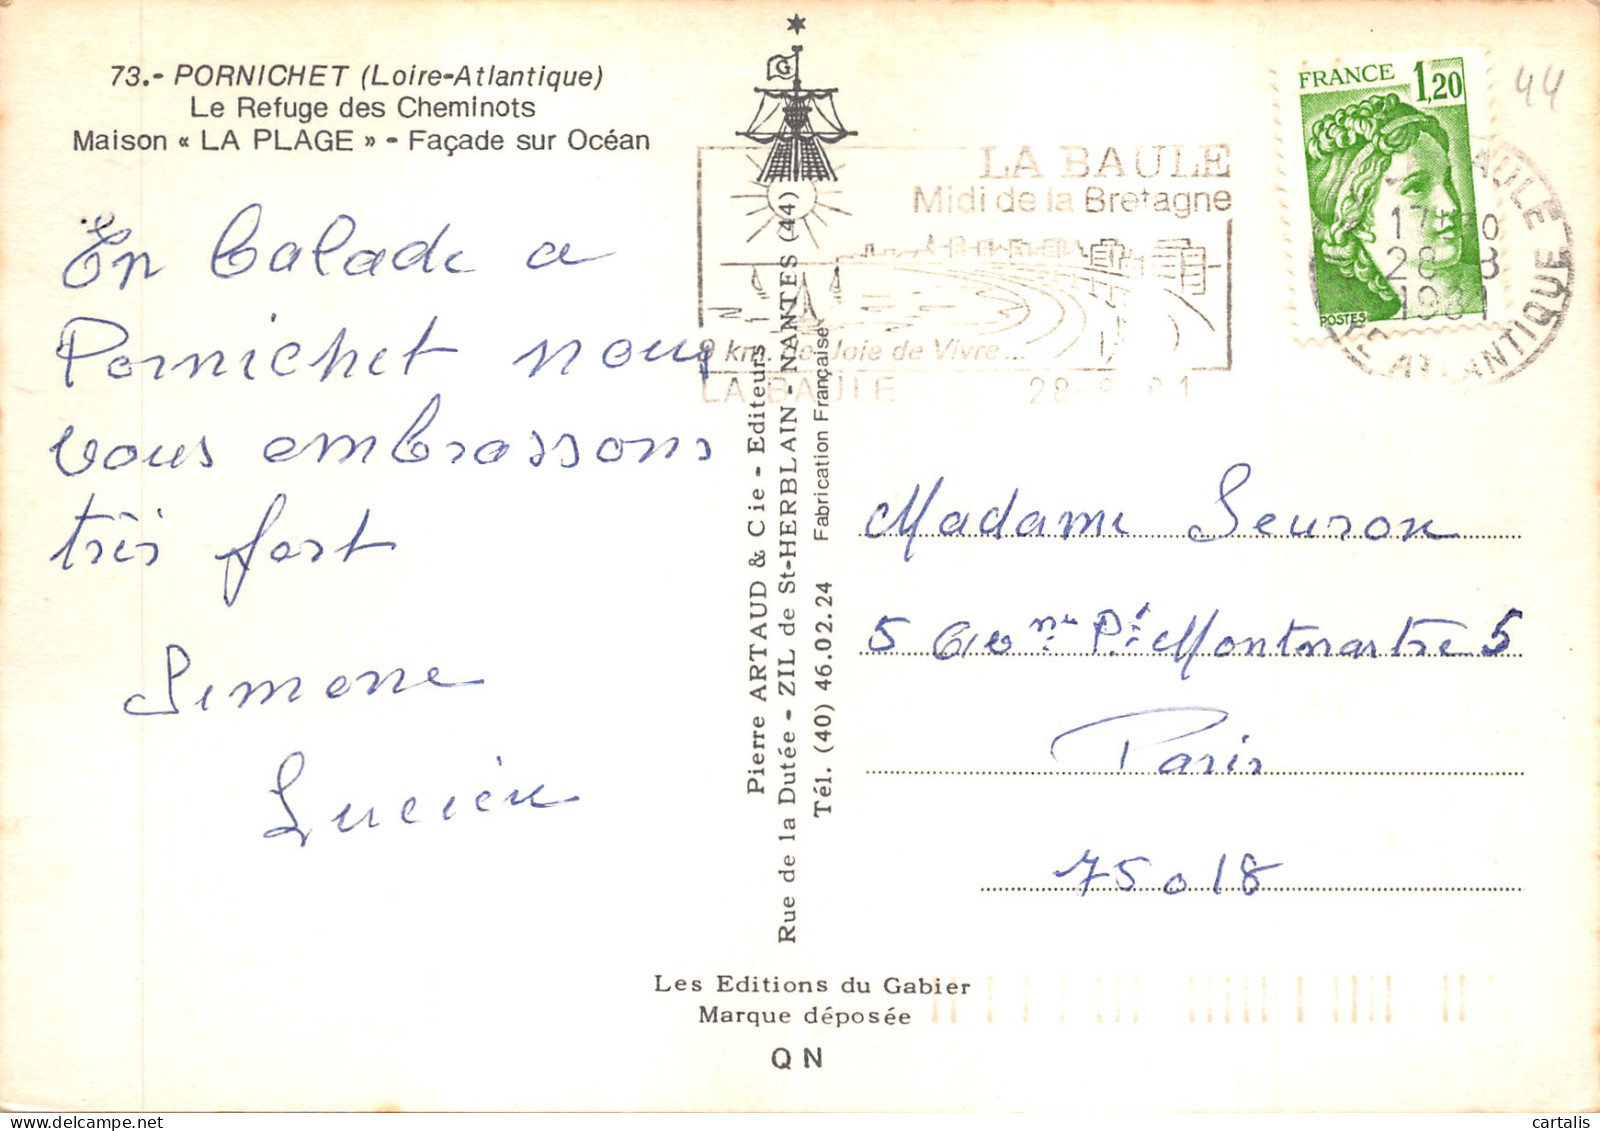 73.- PORNICHET (Loire-Atlantique)
Le Refuge des Cheminots
Maison « LA PLAGE » - Façade sur Océan
En balade a
Pornichet nous
vous embrassons
très fort
Simone
Lucien
G
Pierre ARTAUD & Cie - Editeurs
Rue de la Dutée - ZIL de St-HERBLAIN - NANTES (44)
Tél. (40) 46.02.24 Fabrication Française
Les Editions du Gabier
Marque déposée
Q N
LA BAULE
Midi de la Bretagne
9 km de Joie de Vivre...
LA BAULE 28-8 81
FRANCE 1,20
POSTES
44
BAULE
17 30
28 8
1981
LOIRE ATLANTIQUE
Madame
5 Montmartre 5
Paris
75018